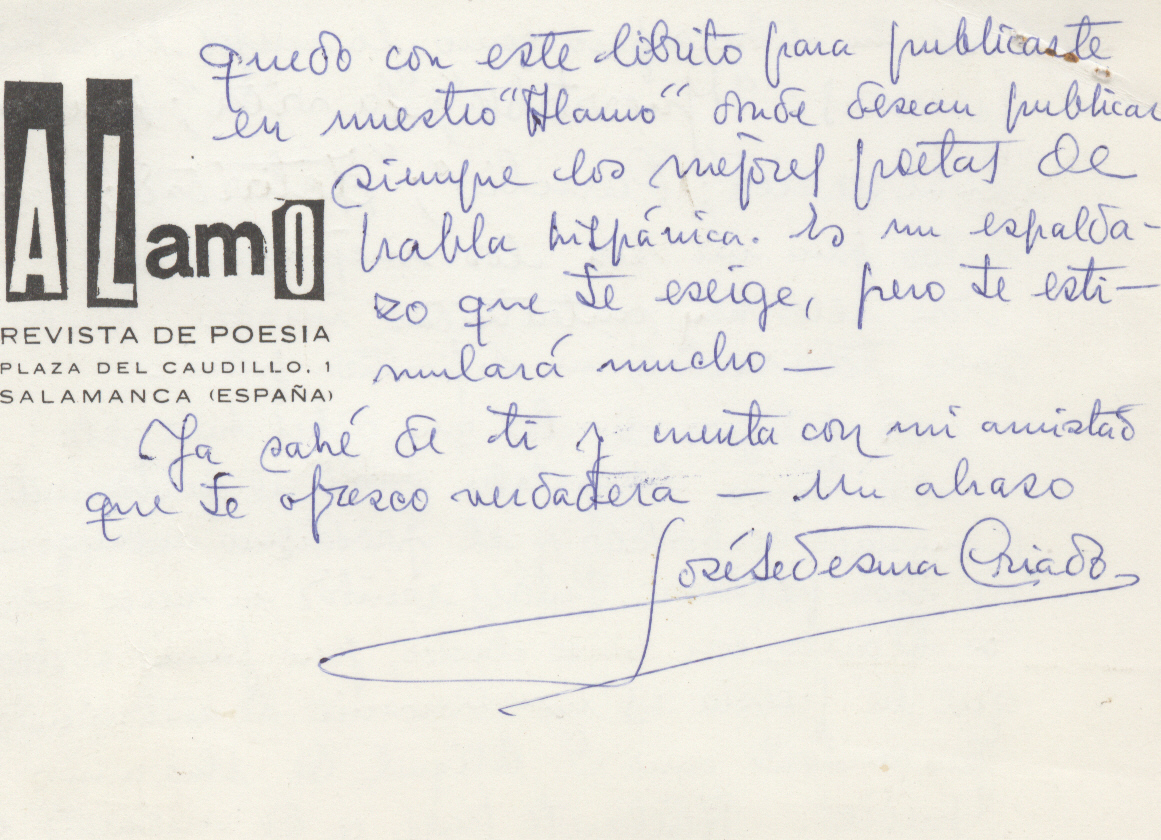 quedo con este librito para publicarte
en nuestro "Alamo" donde desean publicar
siempre los mejores poetas de
habla hispánica. Es un espalda-
zo que te exige, pero te esti-
mulará mucho —
Ya sabé de ti y cuenta con mi amistad
que te ofrezco verdadera — Un abrazo
José Ledesma Criado
ALamO
REVISTA DE POESIA
PLAZA DEL CAUDILLO, 1
SALAMANCA (ESPAÑA)